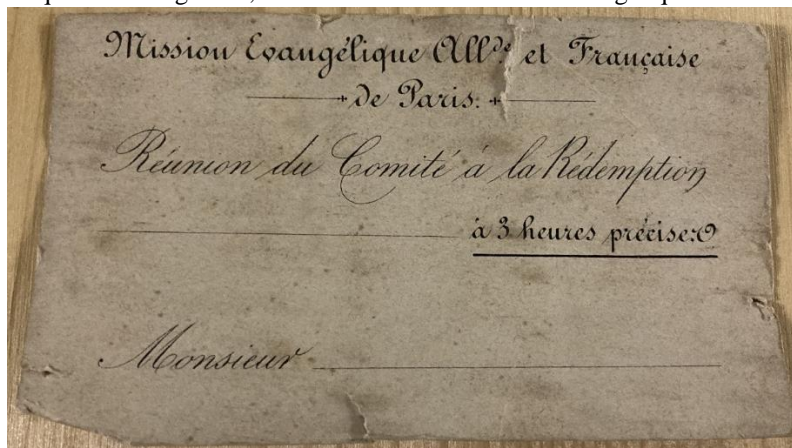 Mission Evangélique All.de et Française
de Paris.
Réunion du Comité à la Rédemption
à 3 heures précises
Monsieur